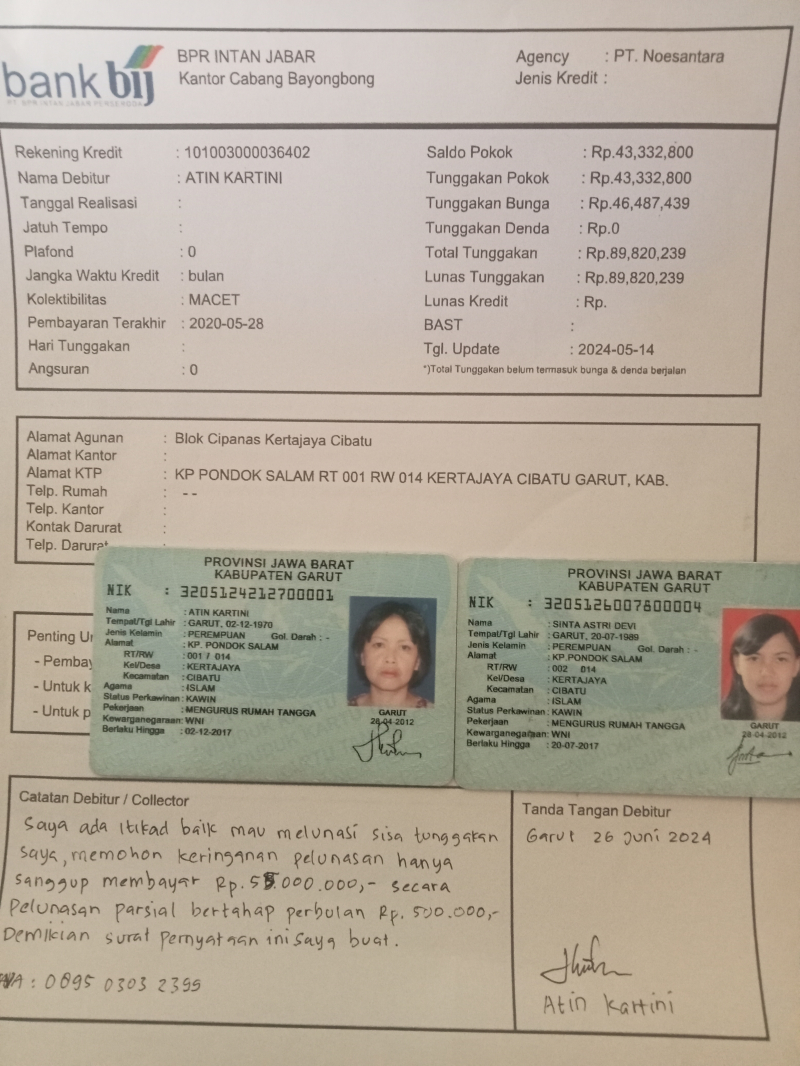 bank bij
PT. BPR INTAN JABAR PERSERODA
BPR INTAN JABAR
Kantor Cabang Bayongbong
Agency : PT. Noesantara
Jenis Kredit :
Rekening Kredit : 101003000036402
Nama Debitur : ATIN KARTINI
Tanggal Realisasi :
Jatuh Tempo :
Plafond : 0
Jangka Waktu Kredit : bulan
Kolektibilitas : MACET
Pembayaran Terakhir : 2020-05-28
Hari Tunggakan :
Angsuran : 0
Saldo Pokok : Rp.43,332,800
Tunggakan Pokok : Rp.43,332,800
Tunggakan Bunga : Rp.46,487,439
Tunggakan Denda : Rp.0
Total Tunggakan : Rp.89,820,239
Lunas Tunggakan : Rp.89,820,239
Lunas Kredit : Rp.
BAST :
Tgl. Update : 2024-05-14
*)Total Tunggakan belum termasuk bunga & denda berjalan
Alamat Agunan : Blok Cipanas Kertajaya Cibatu
Alamat Kantor :
Alamat KTP : KP PONDOK SALAM RT 001 RW 014 KERTAJAYA CIBATU GARUT, KAB.
Telp. Rumah : - -
Telp. Kantor :
Kontak Darurat :
Telp. Darurat
PROVINSI JAWA BARAT
KABUPATEN GARUT
NIK : 3205124212700001
Nama : ATIN KARTINI
Tempat/Tgl Lahir : GARUT, 02-12-1970
Jenis Kelamin : PEREMPUAN Gol. Darah : -
Alamat : KP. PONDOK SALAM
RT/RW : 001 / 014
Kel/Desa : KERTAJAYA
Kecamatan : CIBATU
Agama : ISLAM
Status Perkawinan : KAWIN
Pekerjaan : MENGURUS RUMAH TANGGA
Kewarganegaraan: WNI
Berlaku Hingga : 02-12-2017
GARUT
28-04-2012
PROVINSI JAWA BARAT
KABUPATEN GARUT
NIK : 3205126007800004
Nama : SINTA ASTRI DEVI
Tempat/Tgl Lahir : GARUT, 20-07-1989
Jenis Kelamin : PEREMPUAN Gol. Darah : -
Alamat : KP.PONDOK SALAM
RT/RW : 002 014
Kel/Desa : KERTAJAYA
Kecamatan : CIBATU
Agama : ISLAM
Status Perkawinan : KAWIN
Pekerjaan : MENGURUS RUMAH TANGGA
Kewarganegaraan: WNI
Berlaku Hingga : 20-07-2017
GARUT
28-04-2012
Penting Un
- Pembay
- Untuk k
- Untuk p
Catatan Debitur / Collector
Saya ada itikad baik mau melunasi sisa tunggakan
saya, memohon keringanan pelunasan hanya
sanggup membayar Rp. 55.000.000,- secara
pelunasan parsial bertahap perbulan Rp. 500.000,-
Demikian surat pernyataan ini saya buat.
WA : 0895 0303 2399
Tanda Tangan Debitur
Garut 26 Juni 2024
Atin Kartini